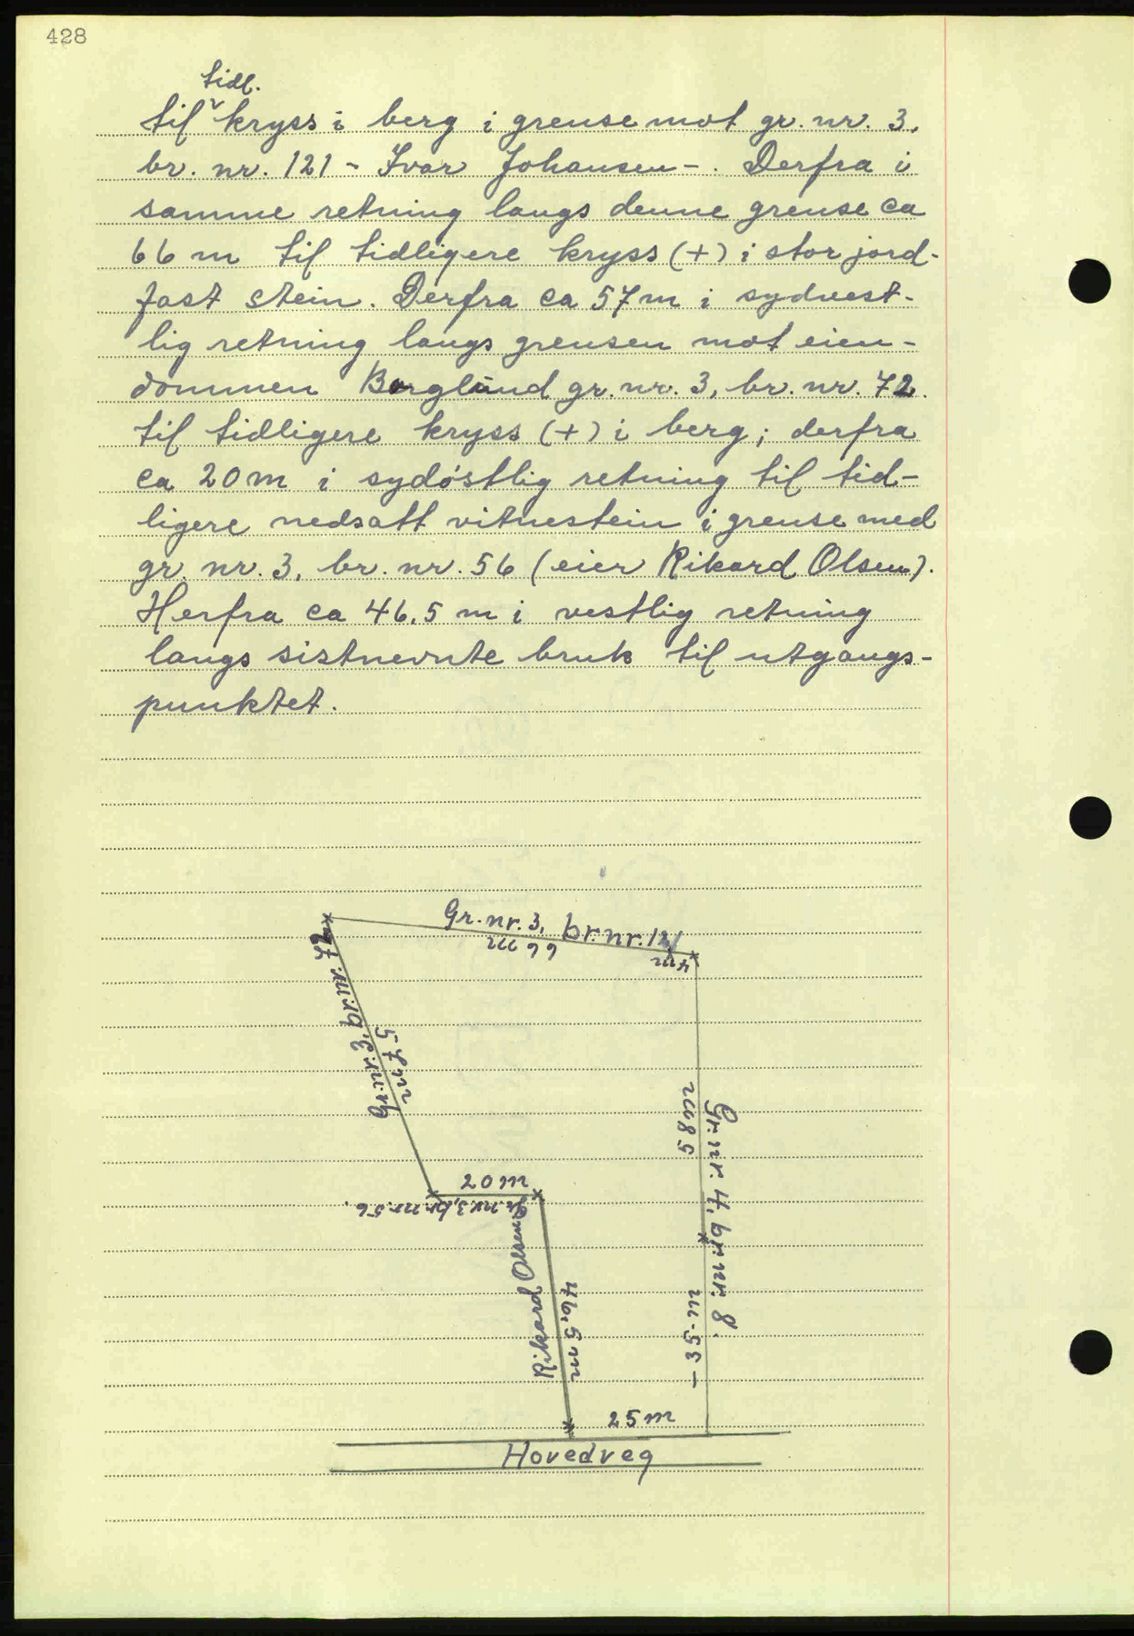 428
tidl.
til kryss i berg i grense mot gr. nr. 3,
br. nr. 121 - Ivar Johansen -. Derfra i
samme retning langs denne grense ca
66 m til tidligere kryss (+) i stor jord-
fast stein. Derfra ca 57 m i sydvest-
lig retning langs grensen mot eien-
dommen Berglund gr. nr. 3, br. nr. 72
til tidligere kryss (+) i berg; derfra
ca 20 m i sydöstlig retning til tid-
ligere nedsatt vitnestein i grense med
gr. nr. 3, br. nr. 56 (eier Rikard Olsen).
Herfra ca 46,5 m i vestlig retning
langs sistnevnte bruk til utgangs-
punktet.
Gr. nr. 3, br. nr. 121
66 m
4 m
Gr. nr. 3, br. nr. 72
57 m
58 m
Gr. nr. 4, br. nr. 8.
20 m
gr. nr. 3, br. nr. 56.
Rikard Olsen
46,5 m
- 35 m
25 m
Hovedveg